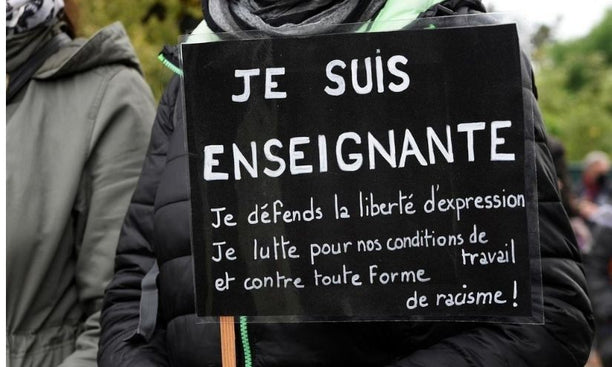 JE SUIS
ENSEIGNANTE
Je défends la liberté d'expression
Je lutte pour nos conditions de
travail
et contre toute forme
de racisme !